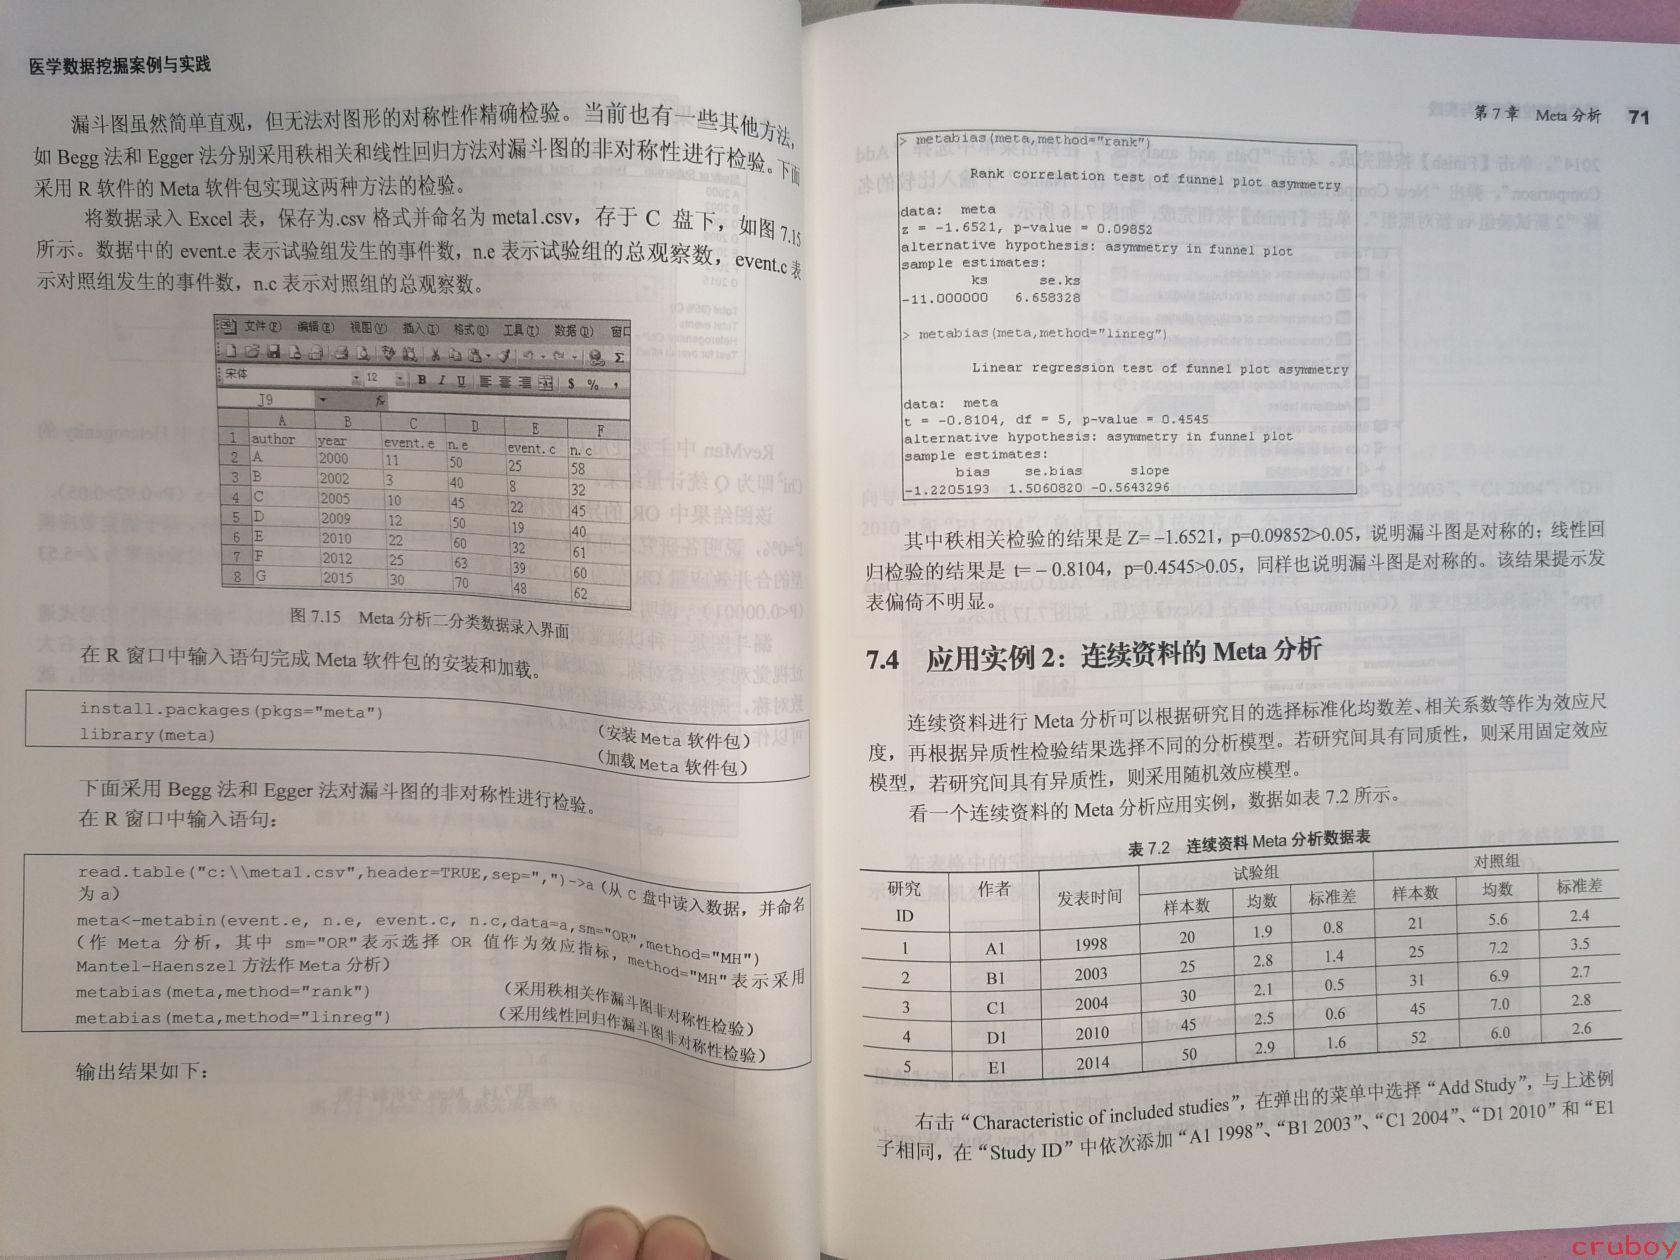 医学数据挖掘案例与实践
漏斗图虽然简单直观，但无法对图形的对称性作精确检验。当前也有一些其他方法，
如 Begg 法和 Egger 法分别采用秩相关和线性回归方法对漏斗图的非对称性进行检验。下面
采用 R 软件的 Meta 软件包实现这两种方法的检验。
将数据录入 Excel 表，保存为.csv 格式并命名为 meta1.csv，存于 C 盘下，如图 7.15
所示。数据中的 event.e 表示试验组发生的事件数，n.e 表示试验组的总观察数，event.c 表
示对照组发生的事件数，n.c 表示对照组的总观察数。
文件(F) 编辑(E) 视图(V) 插入(I) 格式(O) 工具(T) 数据(D) 窗口
宋体 12 B I U $ % ,
J9 fx
A B C D E F
1 author year event.e n.e event.c n.c
2 A 2000 11 50 25 58
3 B 2002 3 40 8 32
4 C 2005 10 45 22 45
5 D 2009 12 50 19 40
6 E 2010 22 60 32 61
7 F 2012 25 63 39 60
8 G 2015 30 70 48 62
图 7.15 Meta 分析二分类数据录入界面
在 R 窗口中输入语句完成 Meta 软件包的安装和加载。
install.packages(pkgs="meta") （安装 Meta 软件包）
library(meta) （加载 Meta 软件包）
下面采用 Begg 法和 Egger 法对漏斗图的非对称性进行检验。
在 R 窗口中输入语句：
read.table("c:\\meta1.csv",header=TRUE,sep=",")->a（从 C 盘中读入数据，并命名
为 a）
meta<-metabin(event.e, n.e, event.c, n.c,data=a,sm="OR",method="MH")
（作 Meta 分析，其中 sm="OR"表示选择 OR 值作为效应指标，method="MH"表示采用
Mantel-Haenszel 方法作 Meta 分析）
metabias(meta,method="rank") （采用秩相关作漏斗图非对称性检验）
metabias(meta,method="linreg") （采用线性回归作漏斗图非对称性检验）
输出结果如下：
第 7 章 Meta 分析 71
> metabias(meta,method="rank")
Rank correlation test of funnel plot asymmetry
data: meta
z = -1.6521, p-value = 0.09852
alternative hypothesis: asymmetry in funnel plot
sample estimates:
ks se.ks
-11.000000 6.658328
> metabias(meta,method="linreg")
Linear regression test of funnel plot asymmetry
data: meta
t = -0.8104, df = 5, p-value = 0.4545
alternative hypothesis: asymmetry in funnel plot
sample estimates:
bias se.bias slope
-1.2205193 1.5060820 -0.5643296
其中秩相关检验的结果是 Z= –1.6521，p=0.09852>0.05，说明漏斗图是对称的；线性回
归检验的结果是 t= – 0.8104，p=0.4545>0.05，同样也说明漏斗图是对称的。该结果提示发
表偏倚不明显。
7.4 应用实例 2：连续资料的 Meta 分析
连续资料进行 Meta 分析可以根据研究目的选择标准化均数差、相关系数等作为效应尺
度，再根据异质性检验结果选择不同的分析模型。若研究间具有同质性，则采用固定效应
模型，若研究间具有异质性，则采用随机效应模型。
看一个连续资料的 Meta 分析应用实例，数据如表 7.2 所示。
表 7.2 连续资料 Meta 分析数据表
研究ID 作者 发表时间 试验组 对照组
样本数 均数 标准差 样本数 均数 标准差
1 A1 1998 20 1.9 0.8 21 5.6 2.4
2 B1 2003 25 2.8 1.4 25 7.2 3.5
3 C1 2004 30 2.1 0.5 31 6.9 2.7
4 D1 2010 45 2.5 0.6 45 7.0 2.8
5 E1 2014 50 2.9 1.6 52 6.0 2.6
右击“Characteristic of included studies”，在弹出的菜单中选择“Add Study”，与上述例
子相同，在“Study ID”中依次添加“A1 1998”、“B1 2003”、“C1 2004”、“D1 2010”和“E1
cruboy